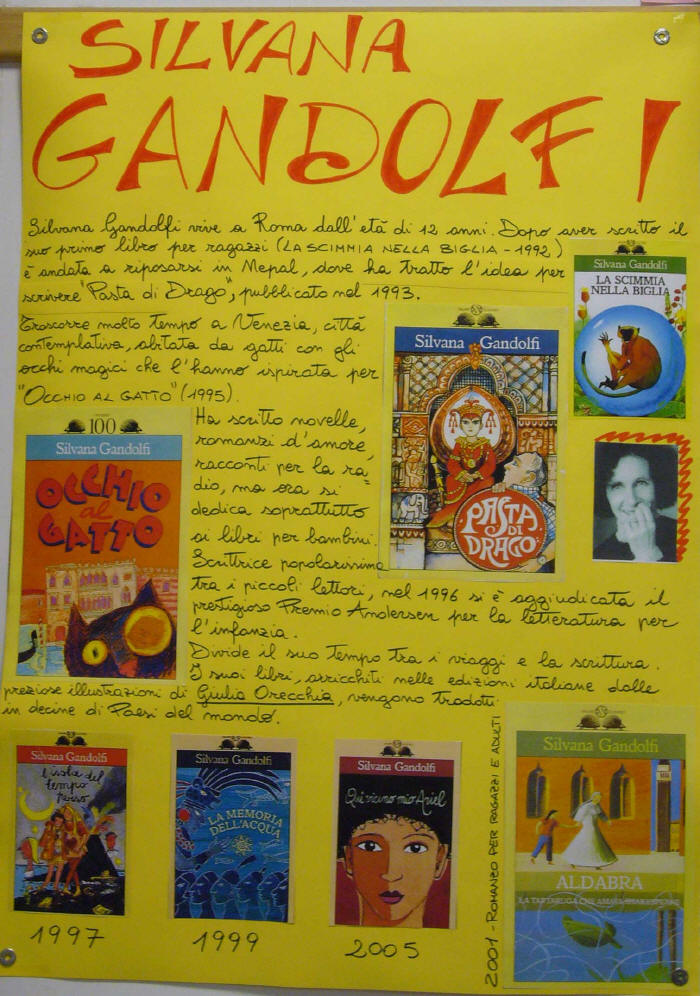 SILVANA
GANDOLFI
Silvana Gandolfi vive a Roma dall'età di 12 anni. Dopo aver scritto il
suo primo libro per ragazzi (LA SCIMMIA NELLA BIGLIA - 1992)
è andata a riposarsi in Nepal, dove ha tratto l'idea per
scrivere "Pasta di Drago", pubblicato nel 1993.
Trascorre molto tempo a Venezia, città
contemplativa, abitata da gatti con gli
occhi magici che l'hanno ispirata per
"OCCHIO AL GATTO" (1995).
Ha scritto novelle,
romanzi d'amore,
racconti per la ra=
dio, ma ora si
dedica soprattutto
ai libri per bambini.
Scrittrice popolarissima
tra i piccoli lettori, nel 1996 si è aggiudicata il
prestigioso Premio Andersen per la letteratura per
l'infanzia.
Divide il suo tempo tra i viaggi e la scrittura.
I suoi libri, arricchiti nelle edizioni italiane dalle
preziose illustrazioni di Giulia Orecchia, vengono tradotti
in decine di Paesi del mondo.
Silvana Gandolfi
LA SCIMMIA
NELLA BIGLIA
Silvana Gandolfi
PASTA
DI
DRAGO
100
Silvana Gandolfi
OCCHIO
al
GATTO
Silvana Gandolfi
l'isola del
tempo
perso
1997
Silvana Gandolfi
LA MEMORIA
DELL'ACQUA
1999
Silvana Gandolfi
Qui vicino mio Ariel
2005
2001 - ROMANZO PER RAGAZZI E ADULTI
Silvana Gandolfi
ALDABRA
LA TARTARUGA CHE AMAVA SHAKESPEARE